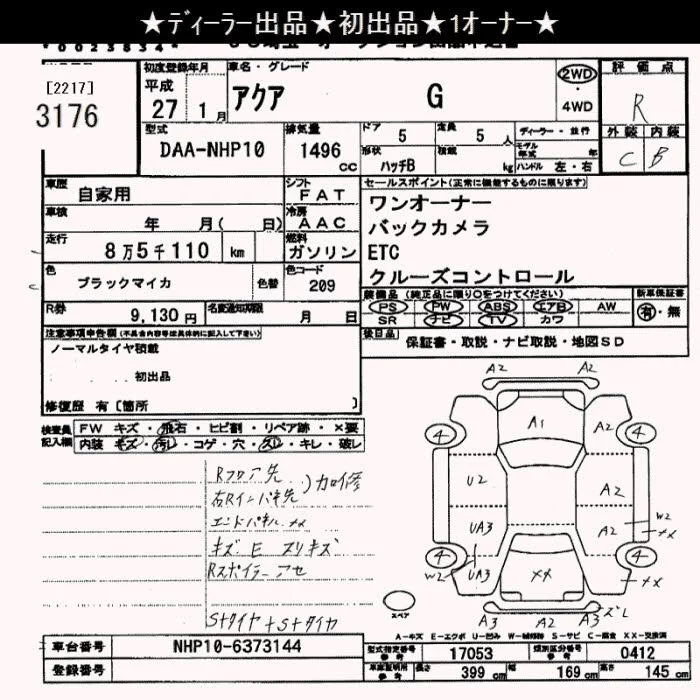 ★ディーラー出品★初出品★1オーナー★
*0023834*
[2217]
3176
初度登録年月 車名・グレード 評価点
平成 27 1月 アクア G 2WD・4WD R
型式 排気量 ドア 5 定員 5人 ディーラー・並行 外装 内装
DAA-NHP10 1496cc 形状 ハッチB 積載 kg モデル年式 年 ハンドル 左・右 C B
車歴 自家用 シフト FAT セールスポイント(正常に機能するものに限ります)
車検 年 月( 日) 冷房 AAC ワンオーナー
走行 8万5千110 km 燃料 ガソリン バックカメラ
ETC
色 ブラックマイカ 色替 色コード 209 クルーズコントロール
R券 9,130円 名変通知期限 月 日 装備品(純正品に限り○をつけてください) 新車保証書
PS PW ABS エアB AW 有・無
SR ナビ TV カワ
注意事項申告欄(不具合内容等は具体的に記入して下さい) 後日品 保証書・取説・ナビ取説・地図SD
ノーマルタイヤ積載
初出品
修復歴 有〔箇所 〕
検査員記入欄 FW キズ・飛石・ヒビ割・リペア跡・×要
内装 キズ・汚レ・コゲ・穴・欠レ・キレ・破レ
Rフロア先
右Rインパネ先 )加修
エンドパネル ××
キズ E スリキズ
Rスポイラー アセ
Sタイヤ+Sタイヤ
A2 A2
4 A1 A2 4
U2 A2
UA3 A2 W2 ××
4 W2 UA3 ×× 4 ××
A3 A2 A3 ズレ
スペア
A-キズ E-エクボ U-凹み W-補修跡 S-サビ C-腐食 XX-交換済
車台番号 NHP10-6373144 型式指定番号 参考 17053 類別区分番号 参考 0412
登録番号 車庫証明用 参考 長さ 399 cm 幅 169 cm 高さ 145 cm